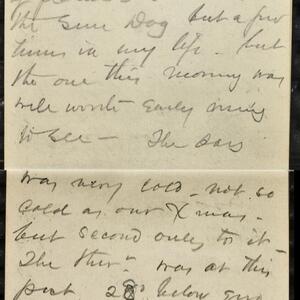 the Sun Dog but a few
times in my life - but
the one this morning was
well worth Early rising
to see - The day
was very cold - not so
cold as our Xmas -
but second only to it -
The Ther. was at this
post 28° below and